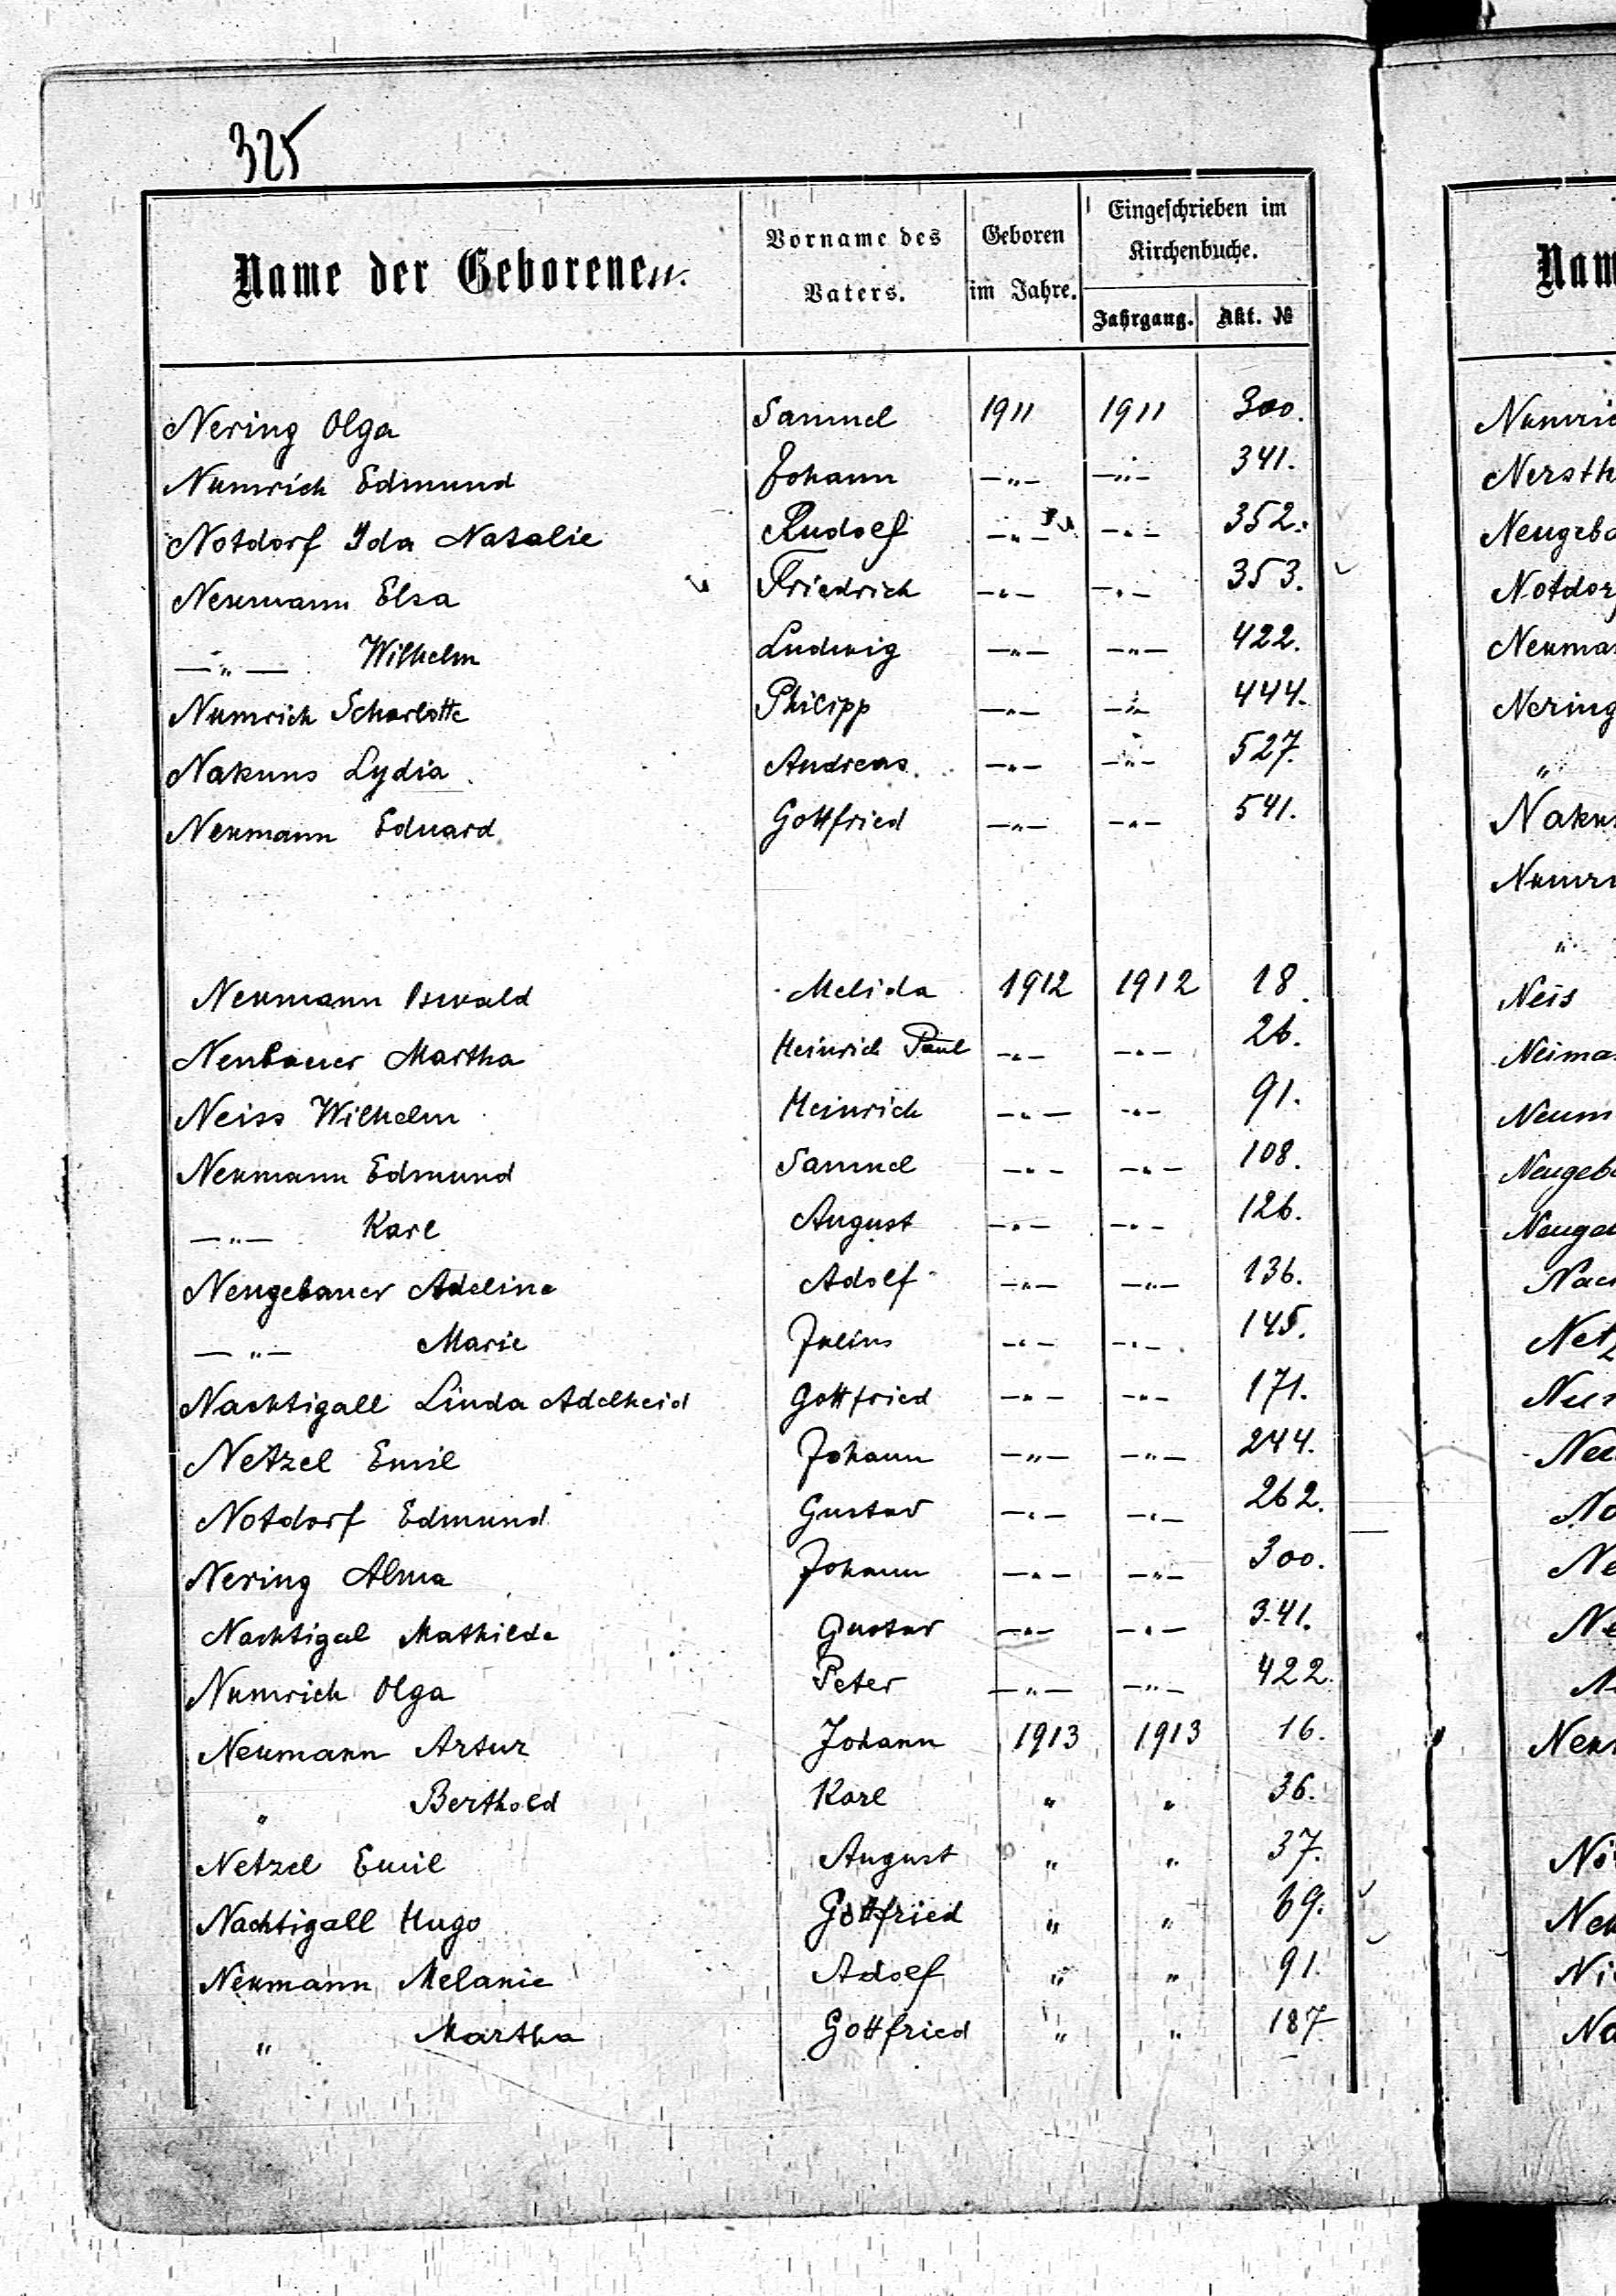 325
Name der Geborenen.
Vorname des Vaters.
Geboren im Jahre.
Eingeschrieben im Kirchenbuche.
Jahrgang. Akt. №
Nering Olga Samuel 1911 1911 300.
Numrich Edmund Johann —„— —„— 341.
Notdorf Ida Natalie Rudolf —„— —„— 352.
Neumann Elsa Friedrich —„— —„— 353.
—„— Wilhelm Ludwig —„— —„— 422.
Numrich Scharlotte Philipp —„— —„— 444.
Nakuns Lydia Andreas —„— —„— 527.
Neumann Eduard Gottfried —„— —„— 541.
Neumann Oswald Melida 1912 1912 18.
Neubauer Martha Heinrich Paul —„— —„— 26.
Neiss Wilhelm Heinrich —„— —„— 91.
Neumann Edmund Samuel —„— —„— 108.
—„— Karl August —„— —„— 126.
Neugebauer Adeline Adolf —„— —„— 136.
—„— Marie Julius —„— —„— 145.
Nachtigall Linda Adelheid Gottfried —„— —„— 171.
Netzel Emil Johann —„— —„— 244.
Notdorf Edmund Gustav —„— —„— 262.
Nering Alma Johann —„— —„— 300.
Nachtigal Mathilde Gustav —„— —„— 341.
Numrich Olga Peter —„— —„— 422.
Neumann Artur Johann 1913 1913 16.
„ Berthold Karl „ „ 36.
Netzel Emil August „ „ 37.
Nachtigall Hugo Gottfried „ „ 69.
Neumann Melanie Adolf „ „ 91.
„ Martha Gottfried „ „ 187